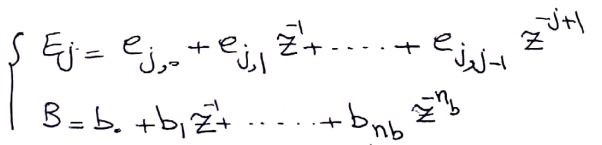 E_j = e_{j,0} + e_{j,1} z^{-1} + ..... + e_{j,j-1} z^{-j+1}
B = b_0 + b_1 z^{-1} + ...... + b_{nb} z^{-n_b}